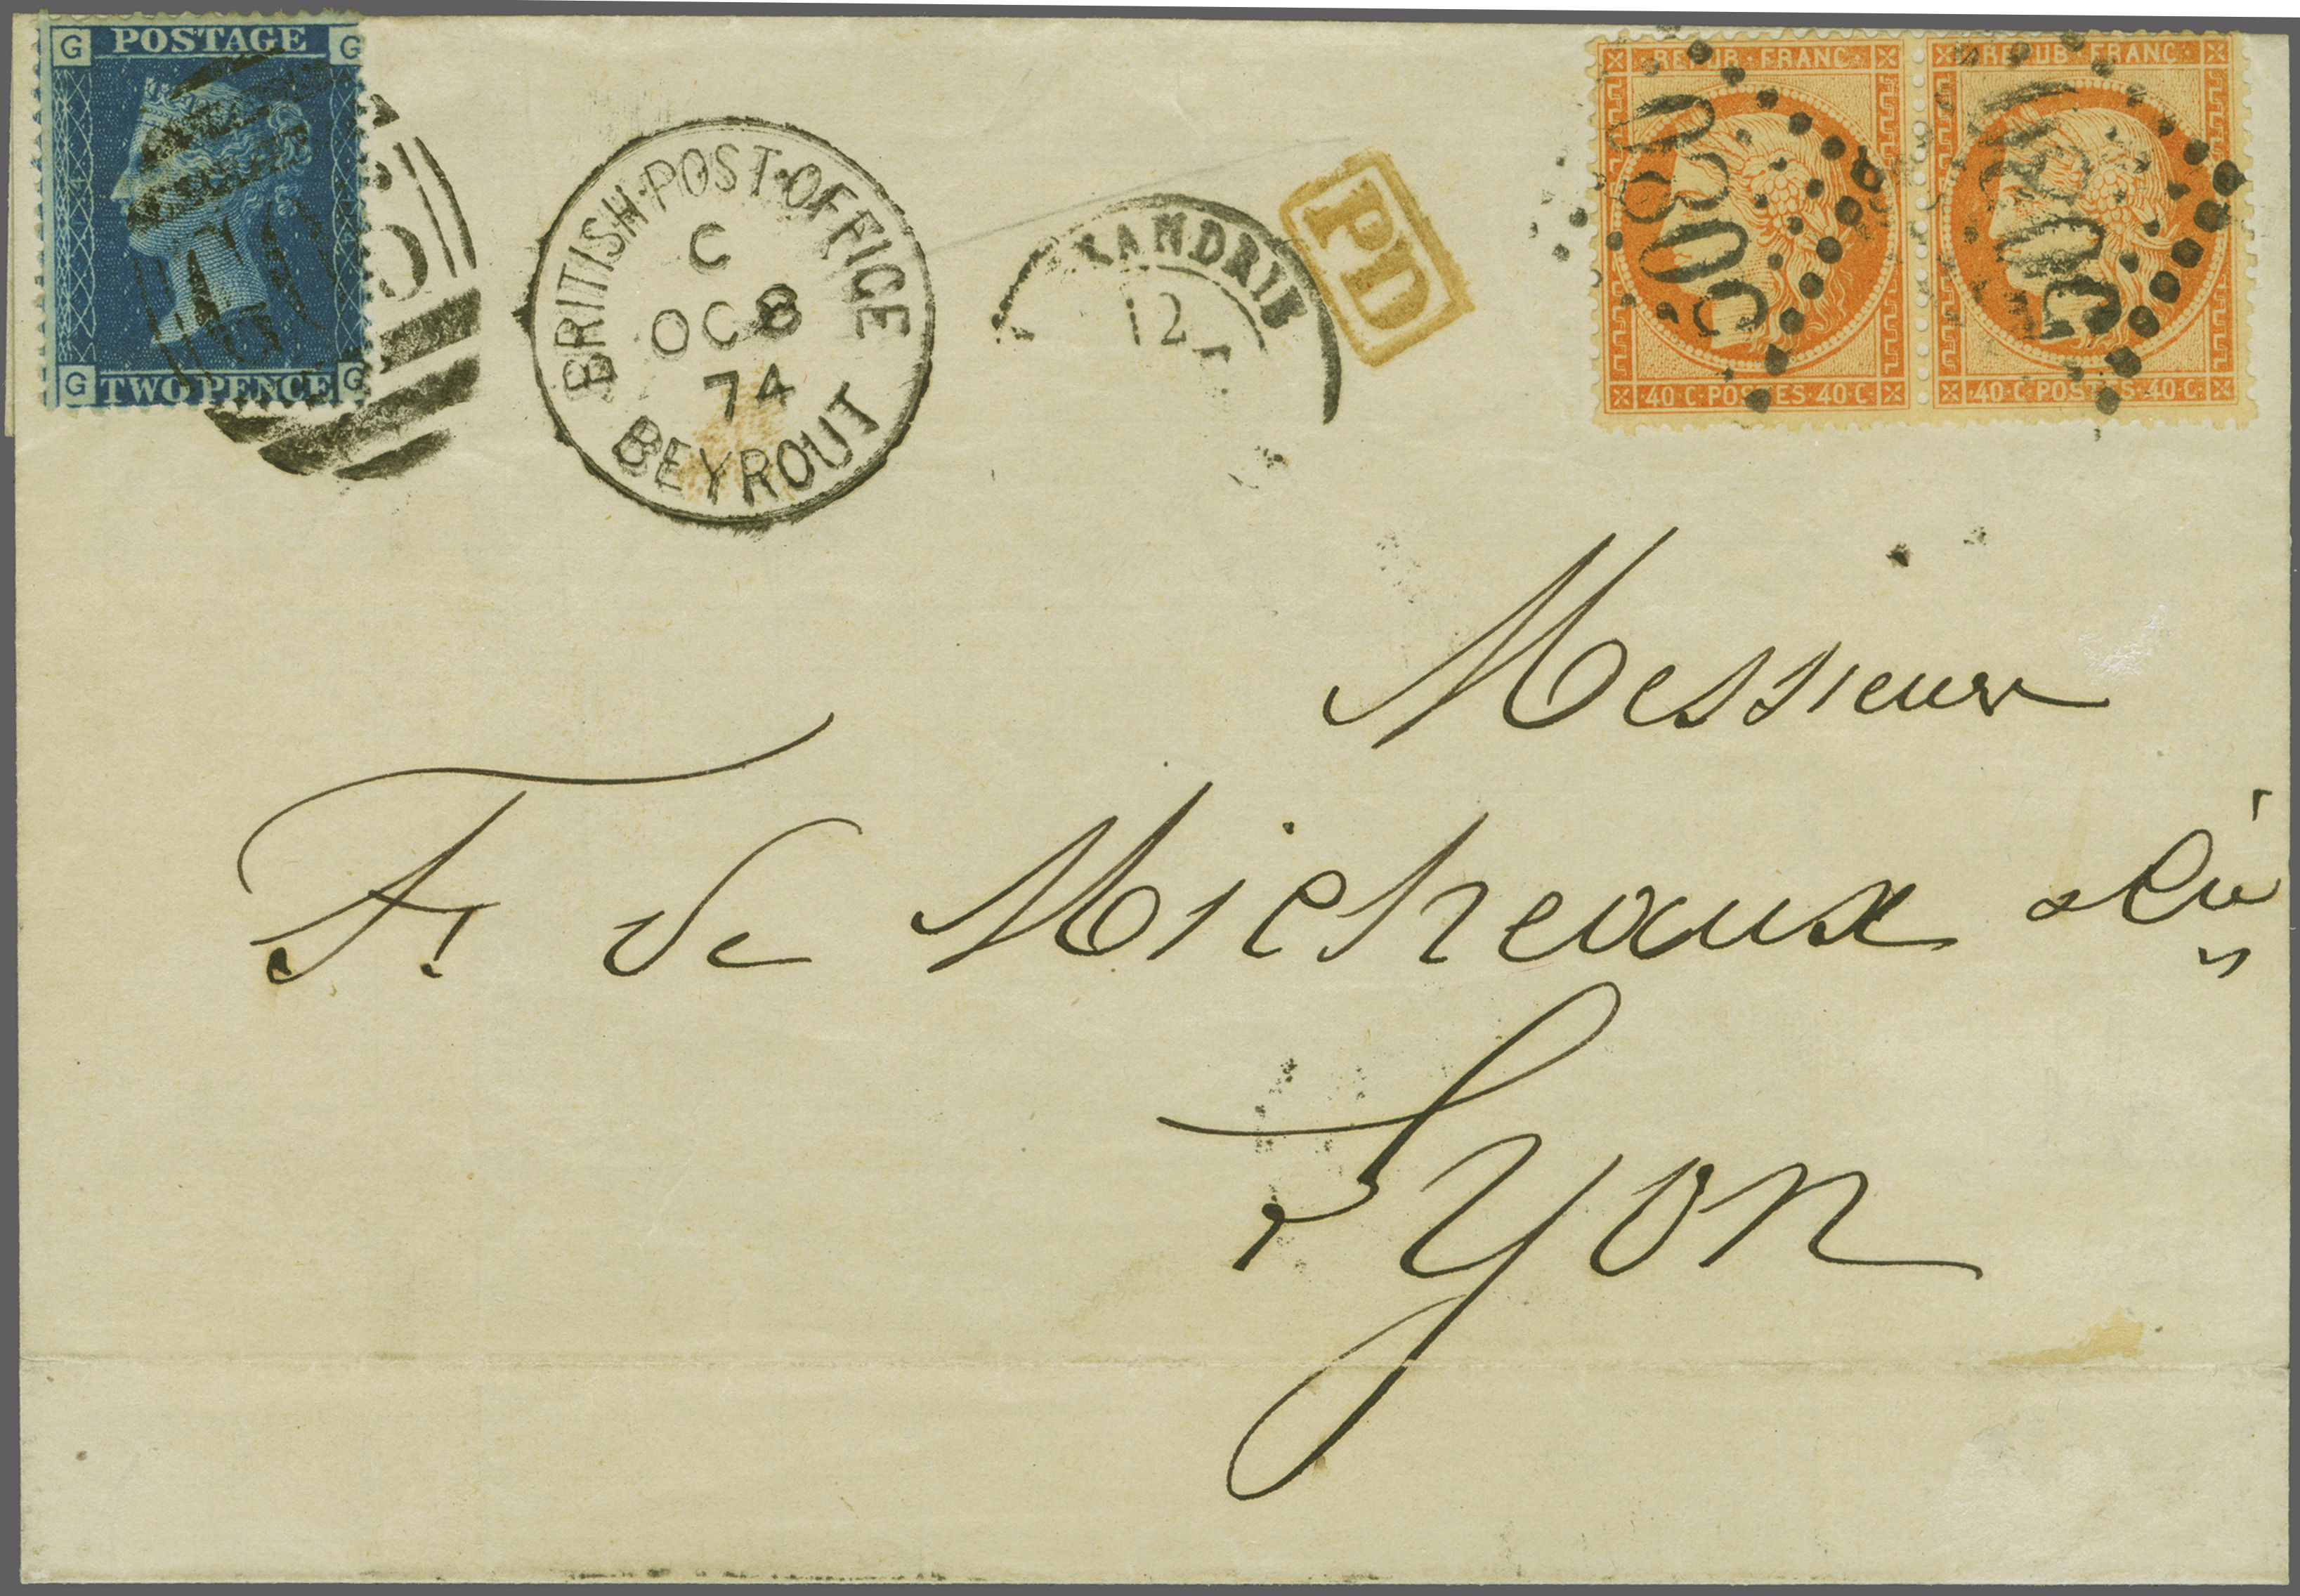 G POSTAGE G
G TWO PENCE G
BRITISH·POST·OFFICE
C
OC 8
74
BEYROUT
XANDRIE
12
PD
REPUB·FRANC·
40·C·POSTES·40·C·
5080
REPUB·FRANC·
40·C·POSTES·40·C·
5080
Messieurs
F. de Micheaux &
Lyon